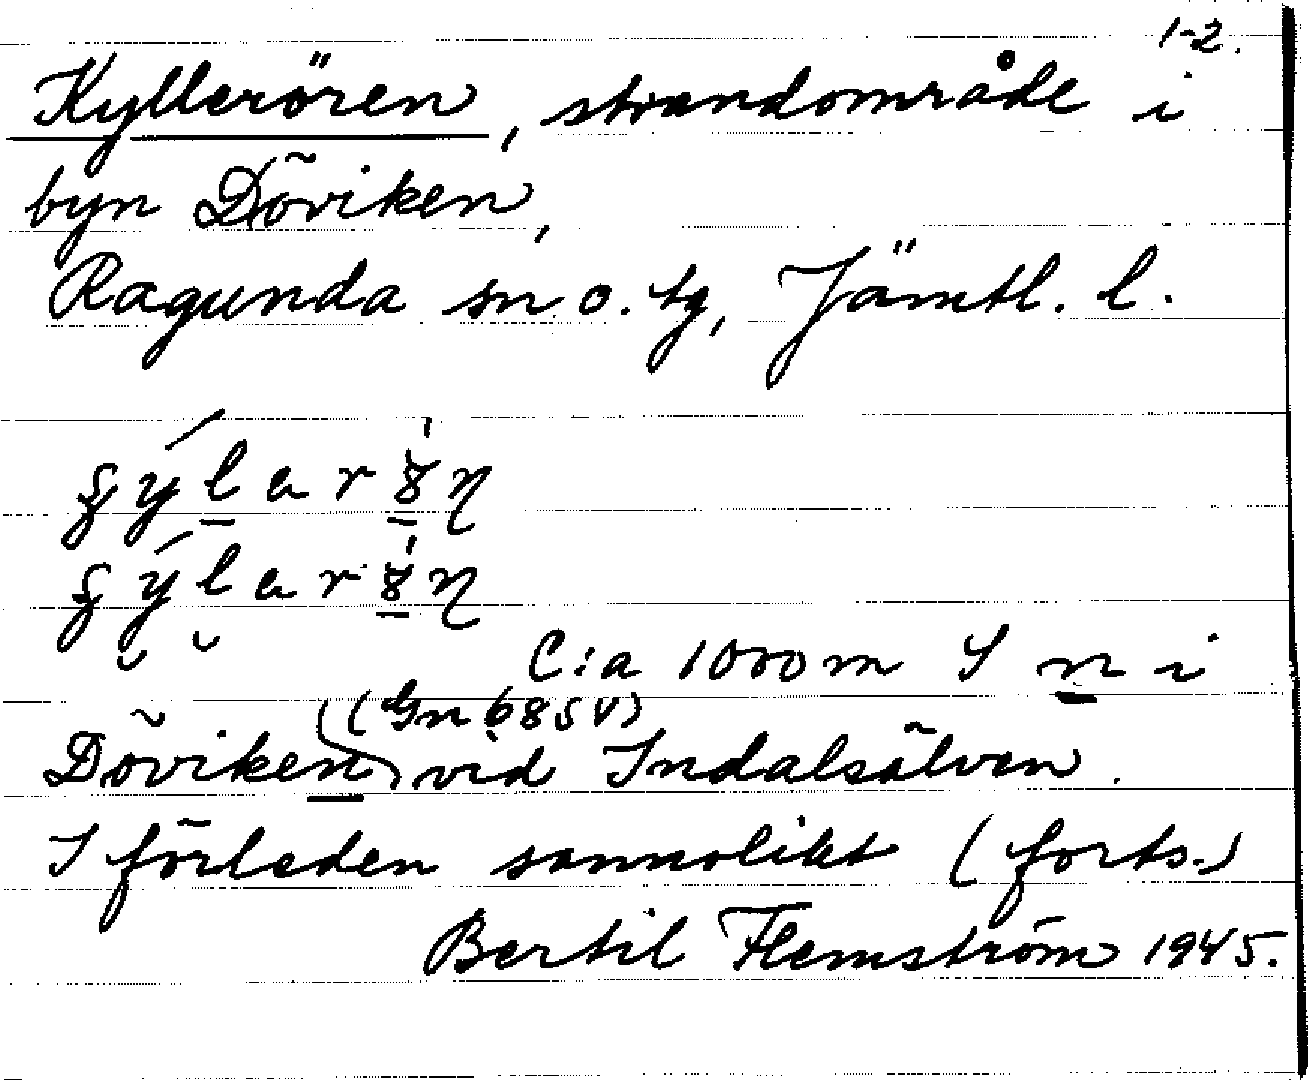 1-2.
Kyllerören, strandområde i
byn Döviken,
Ragunda sn o. tg, Jämtl. l.
C:a 1000 m S n i
Döviken (Gn 685 V) vid Indalsälven.
I förleden sannolikt (forts.)
Bertil Flemström 1945.